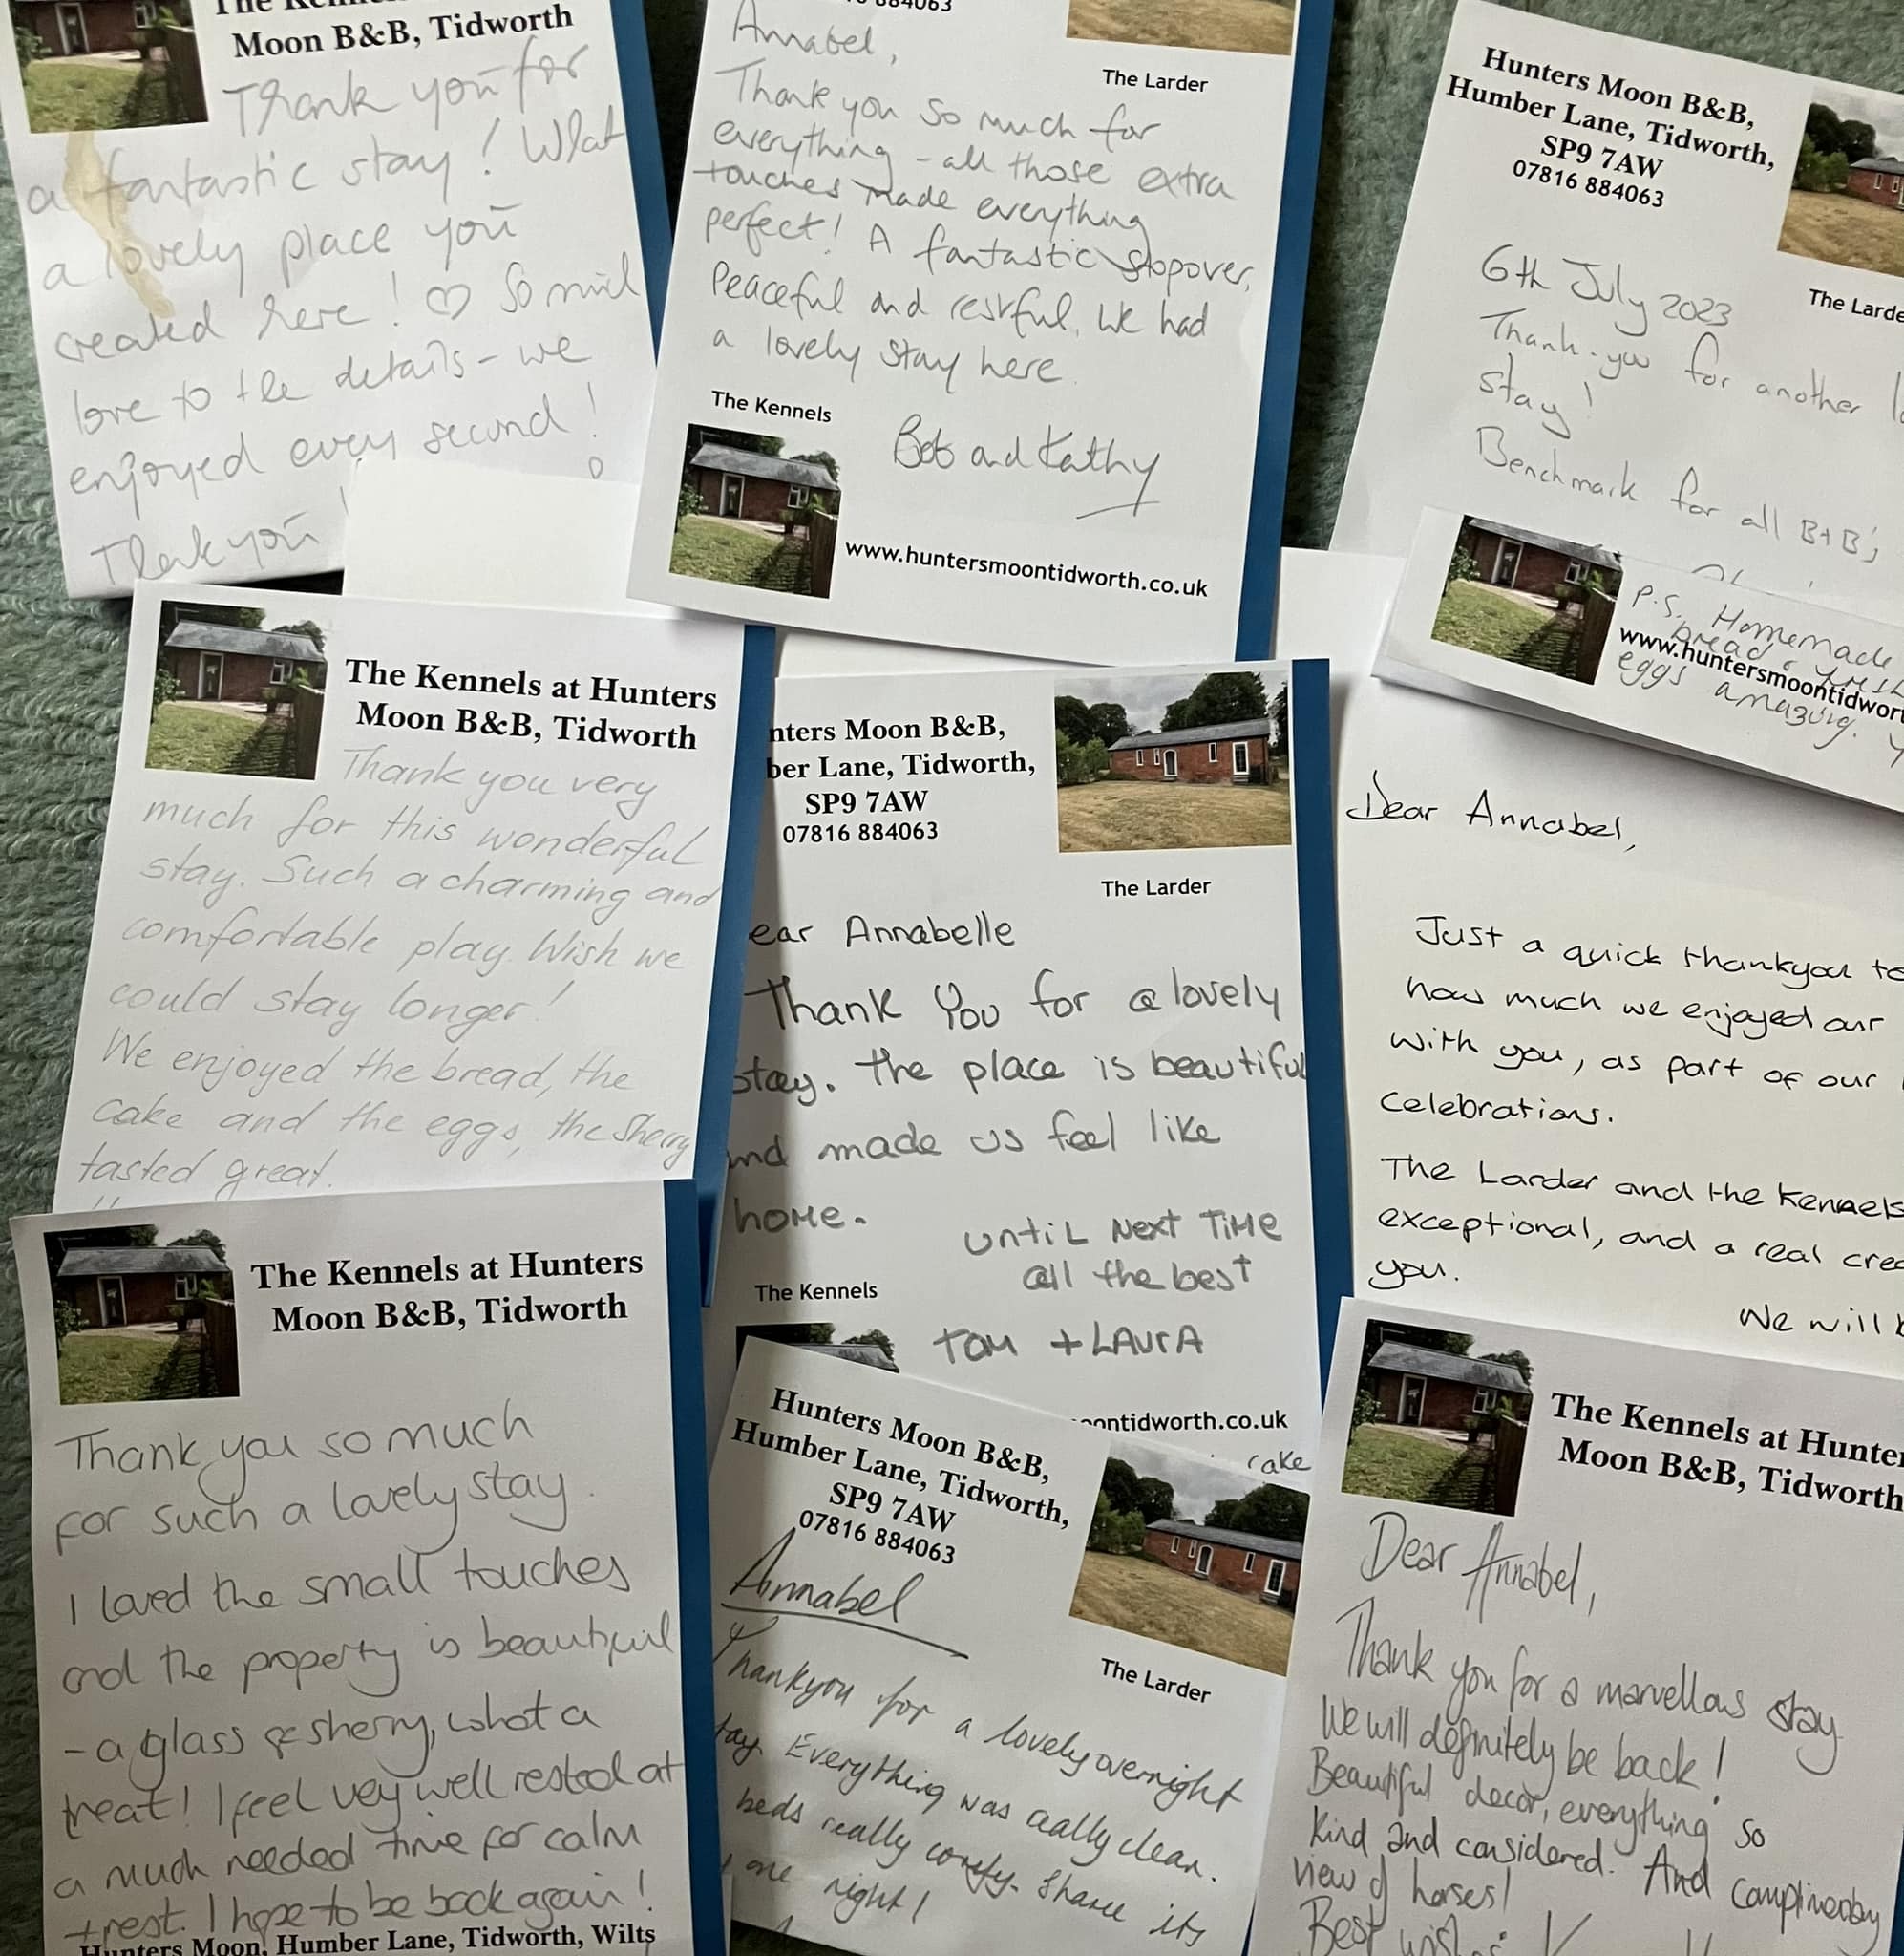 The
Moon B&B, Tidworth
Thank you for
a fantastic stay! What
a lovely place you
created here! ♡ So
love to the details - we
enjoyed every second!
Thank you!
884063
Annabel,
The Larder
Thank you so much for
everything - all those extra
touches made everything
perfect! A fantastic stopover,
Peaceful and restful. We had
a lovely stay here.
The Kennels
Bob and Kathy
www.huntersmoontidworth.co.uk
Hunters Moon B&B,
Humber Lane, Tidworth,
SP9 7AW
07816 884063
The Larde
6th July 2023
Thank-you for another
stay!
Benchmark for all B+B's
P.S. Homemade
bread & fresh
www.huntersmoontidwor
eggs amazing.
The Kennels at Hunters
Moon B&B, Tidworth
Thank you very
much for this wonderful
stay. Such a charming and
comfortable play. Wish we
could stay longer!
We enjoyed the bread, the
cake and the eggs, the Sherry
tasted great.
nters Moon B&B,
ber Lane, Tidworth,
SP9 7AW
07816 884063
The Larder
ear Annabelle
Thank You for a lovely
stay. The place is beautiful
nd made us feel like
home.
until next time
all the best
The Kennels
Tom + Laura
oontidworth.co.uk
cake
Dear Annabel,
Just a quick thankyou to
how much we enjoyed our
with you, as part of our
celebrations.
The Larder and the Kennels
exceptional, and a real cre
you.
We will
The Kennels at Hunters
Moon B&B, Tidworth
Thank you so much
for such a lovely stay.
I loved the small touches
and the property is beautiful
- a glass of sherry, what a
treat! I feel very well rested at
a much needed time for calm
+ rest. I hope to be back again!
Hunters Moon, Humber Lane, Tidworth, Wilts
Hunters Moon B&B,
Humber Lane, Tidworth,
SP9 7AW
07816 884063
Annabel
The Larder
Thankyou for a lovely overnight
tay. Everything was really clean.
beds really comfy. Shame its
one night!
The Kennels at Hunter
Moon B&B, Tidworth
Dear Annabel,
Thank you for a marvellous stay
We will definitely be back!
Beautiful decor, everything so
kind and considered. And complimentary
view of horses!
Best